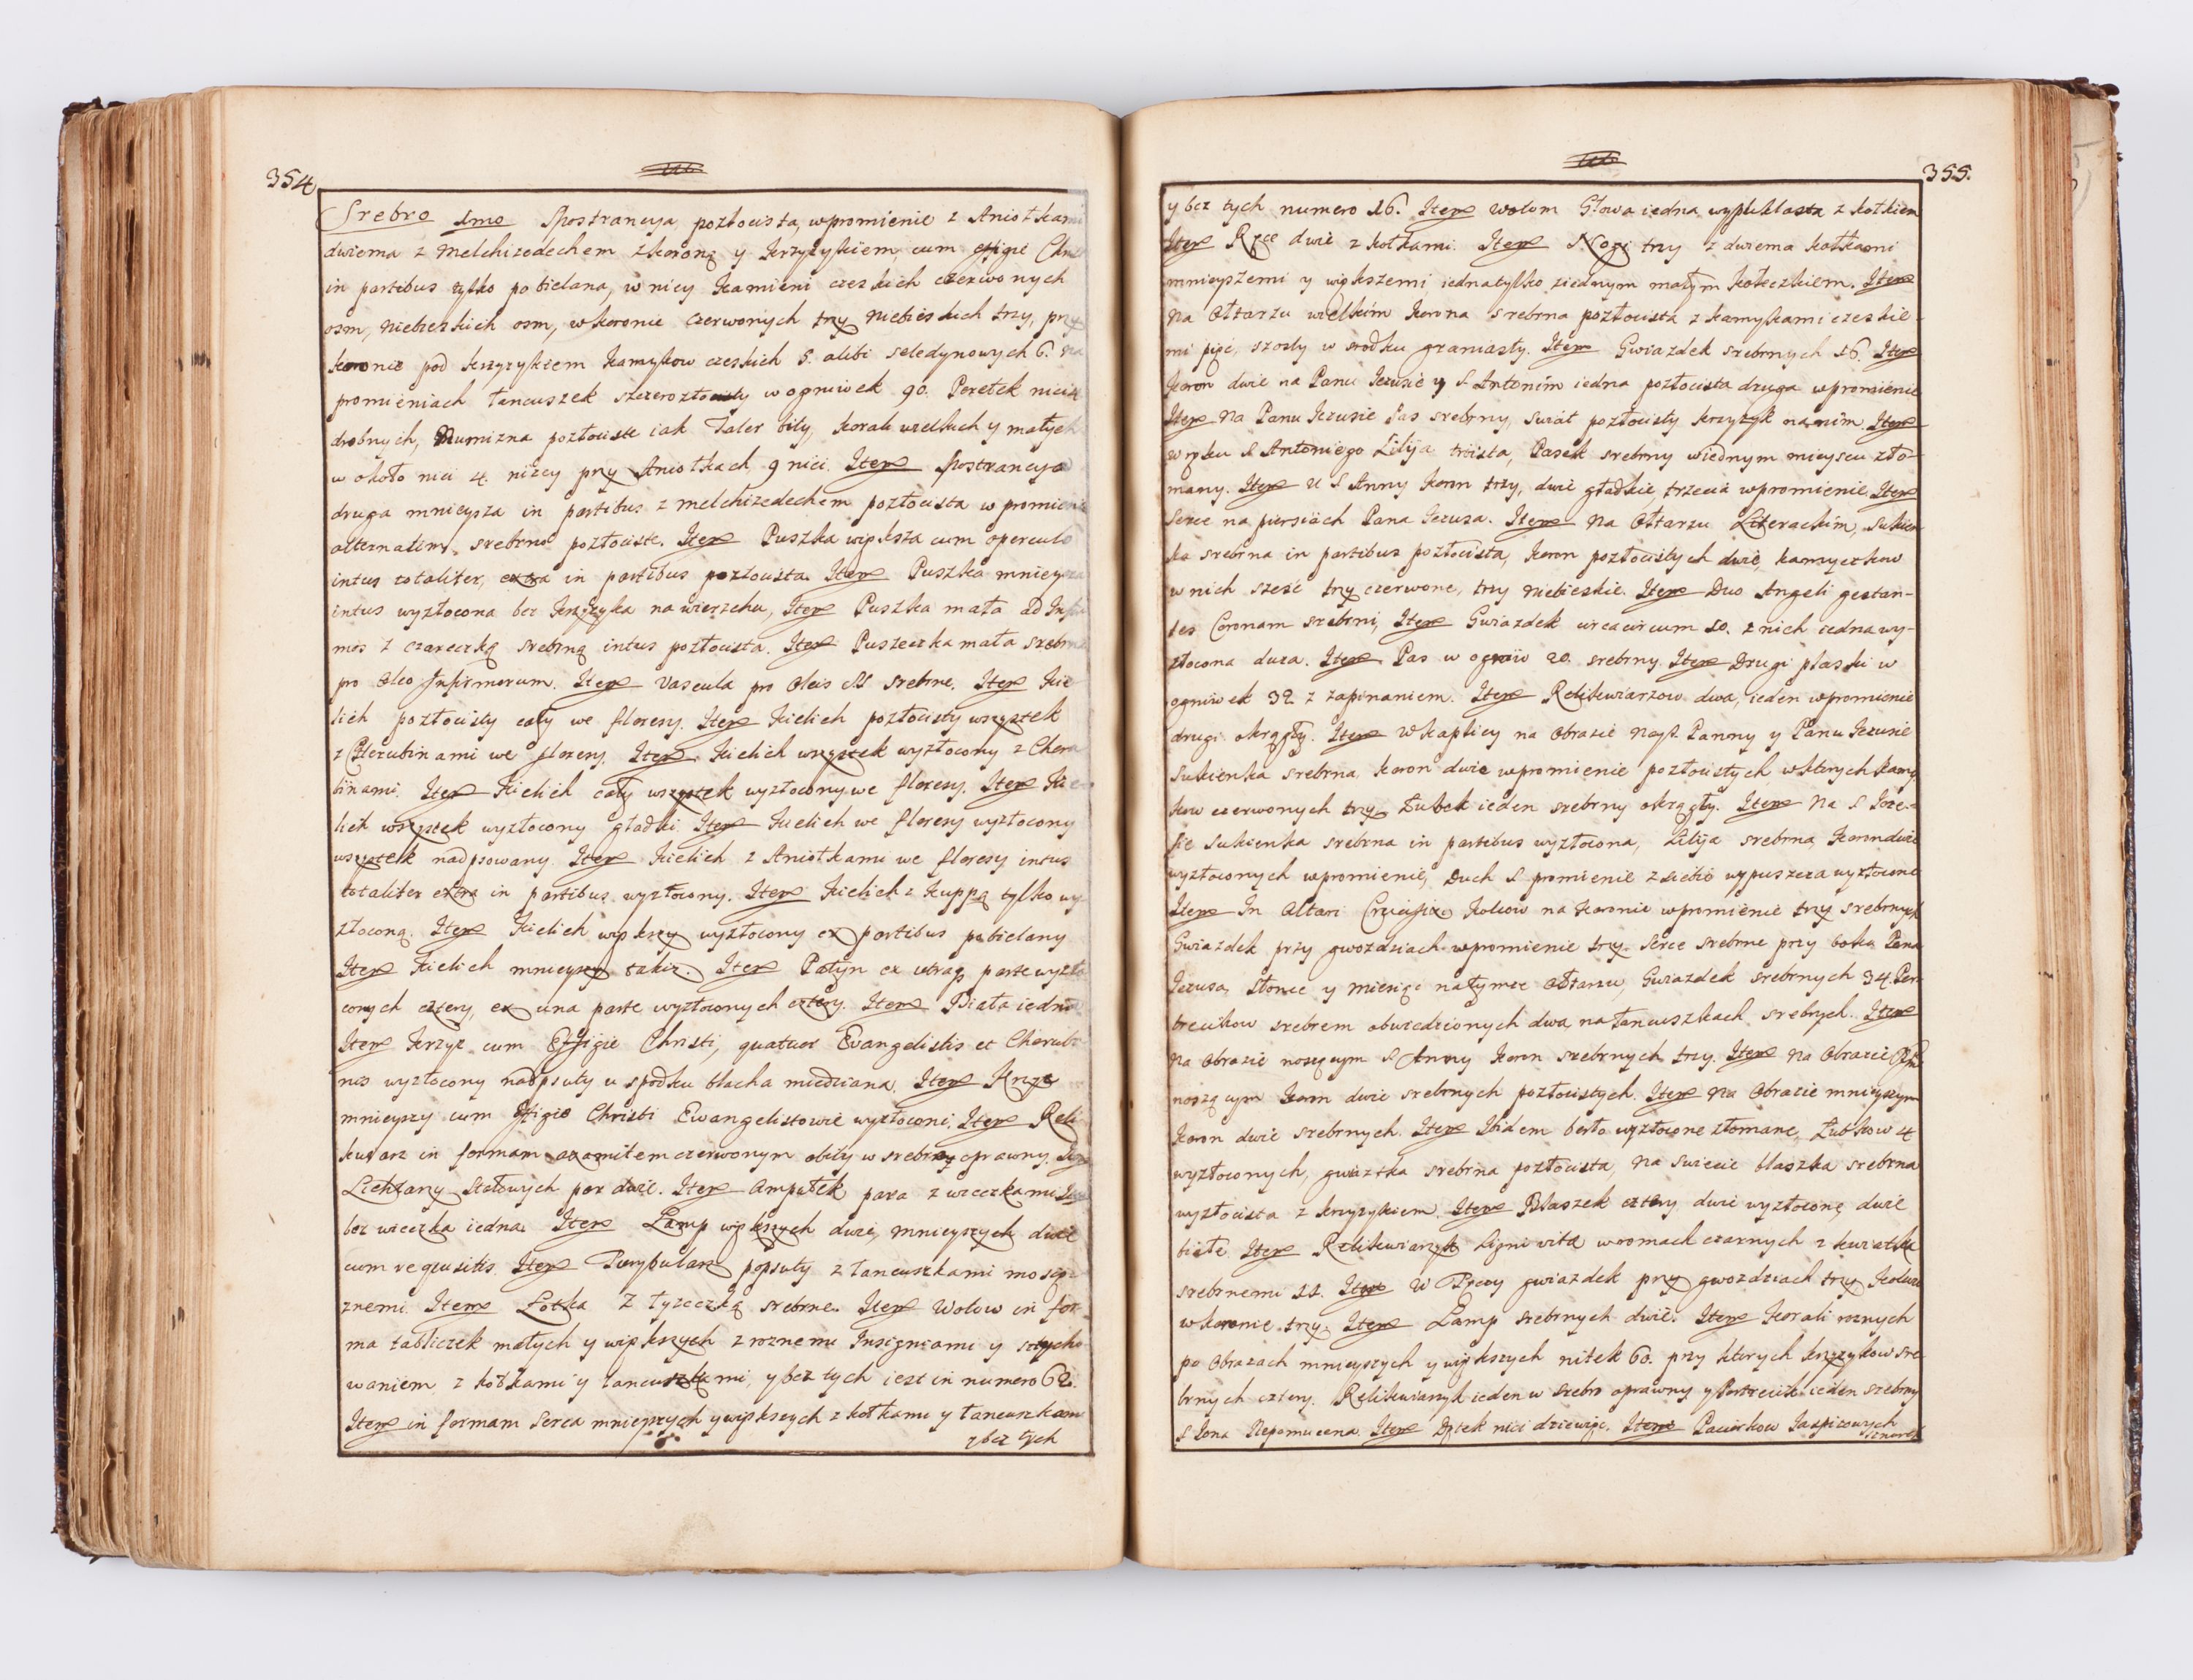 354
Srebro 1mo Mostrancyia pozłocista, wpromienie z Aniołkami
dwiema z Melchizedechem zkoroną y Krzyżykiem, cum effigie
in partibus tylko pobielana, w niey Kamieni czeskich czerwonych
osm, niebieskich osm, wkoronie czerwonych trzy niebieskich trzy, przy
koronie pod krzyżykiem kamykow czeskich 5. alibi seledynowych 6. na
promieniach łancuszek szczerozłocisty w ogniwek 90. Perełek nici 4
drobnych, Numizna pozłociste iak Taler bity, korali wielkich y małych
w około nici 4. niżey przy Aniołkach, 9 nici. Item Mostrancya
druga mnieysza in partibus z melchizedechem pozłocista w promienie
alternatim, srebrne pozłociste. Item Puszka większa cum operculo
intus totaliter, extra in partibus pozłocista. Item Puszka mnieysza
intus wyzłocona bez Krzyżyka na wierzchu, Item Puszka mała ad Infir
mos z czareczką srebrną intus pozłocista. Item Puszeczka mała srebrna
pro Oleo Infirmorum. Item Vascula pro Oleis SS srebrne. Item Kie
lich pozłocisty cały we floresy. Item Kielich pozłocisty wszystek
z Cherubinami we floresy. Item Kielich wszystek wyzłocony z Cheru
binami. Item Kielich cały wszystek wyzłocony we floresy. Item Kie
lich wszystek wyzłocony gładki Item Kielich we floresy wyzłocony
wszystek nadpsowany. Item Kielich z Aniołkami we floresy intus
totaliter extra in partibus wyzłocony. Item Kielich z Kuppą tylko wy
złoconą. Item Kielich większy wyzłocony ex partibus pobielany
Item Kielich mnieyszy takiż. Item Patyn ex utraq parte wyzło
conych cztery, ex una parte wyzłoconych cztery. Item Biała iedna
Item Krzyż cum Effigie Christi, quatuor Evangelistis et Cherubi
nis wyzłocony nadpsuty u spodku blacha miedziana, Item Krzyż
mnieyszy cum Effigie Christi Ewangelistowie wyzłoceni, Item Reli
kwiarz in formam axamitem czerwonym obity w srebrzey oprawny. Item
Lichtarzy Stołowych par dwie. Item Ampułek para z wieczkami Item
bez wieczka iedna. Item Lamp większych dwie, mnieyszych dwie
cum requisitis. Item Turybularz popsuty z łancuszkami mosię
znemi. Item Łotka z łyżeczką srebrne. Item Wotow in for
ma tabliczek małych y większych z roznemi Insigniami y sztycho
waniem, z kołkami y łancuszkami, y bez tych iest in numero 62.
Item in formam Serca mnieyszych y większych z kołkami y łancuszkam
y bez tych
355.
y bez tych numero 16. Item wotum Głowa iedna wypukłasta z kołkiem
Item Ręce dwie z kołkami. Item Nogi trzy z dwiema kołkami
mnieyszemi y większemi iedna tylko ziednym małym kołeczkiem. Item
na Ołtarzu wielkim korona srebrna pozłocista z kamykami czeskie
mi pięć, szosty w srodku graniasty. Item Gwiazdek srebrnych 16. Item
koron dwie na Panu Iezusie y S Antonim iedna pozłocista druga wpromienie
Item na Panu Iezusie Pas srebrny, Swiat pozłocisty krzyżyk na nim. Item
w ręku S Antoniego Lilija troista, Pasek srebrny wiednym mieyscu zło
many. Item U S Anny koron trzy, dwie gładkie, trzecia wpromienie, Item
Serce na piersiach Pana Iezusa. Item Na Ołtarzu Literackim, Sukien
ka srebrna in partibus pozłocista, koron pozłocistych dwie, kamyczkow
w nich szesć trzy czerwone, trzy niebieskie. Item Duo Angeli gestan-
tes Coronam srebrni, Item Gwiazdek circacircum 10. z nich iedna wy-
złocona duza. Item Pas w ogniw 20. srebrny. Item Drugi płaski w
ogniwek 32 z zapinaniem. Item Relikwiarzow dwa, ieden wpromienie
drugi okrągły. Item W kaplicy na Obrazie Nayś Panny y Panu Iezusie
Sukienka srebrna, koron dwie wpromienie pozłocistych, w ktorych kamy
kow czerwonych trzy, Łubek ieden srebrny okrągły. Item Na S Ioze-
fie Sukienka srebrna in partibus wyzłocona, Lilija srebrna, Koron dwie
wyzłoconych wpromienie, Duch S promienie z siebie wypuszcza wyzłocone
Item In Altari Crucifixi Kolcow na Koronie wpromienie trzy srebrnych
Gwiazdek przy gwozdziach wpromienie trzy. Serce srebrne przy boku Pana
Iezusa, Słonce y miesiąc na tymze ołtarzu, Gwiazdek srebrnych 34. Por
trecikow srebrem obwiedzionych dwa na łancuszkach srebrych. Item
Na Obrazie noszącym S Anny Koron srebrnych trzy. Item Na Obrazie
noszącym Koron dwie srebrnych pozłocistych. Item Na Obrazie mnieyszym
Koron dwie srebrnych. Item Ibidem berło wyzłocone złomane, Łubkow 4
wyzłoconych, gwiaztka srebrna pozłocista, na Swiecie blaszka srebrna
wyzłocista z krzyżykiem. Item Blaszek cztery dwie wyzłocone, dwie
białe. Item Relikwiarzyk Ligni vitæ w romach czarnych z kwiatka
srebrnemi 11. Item W Pręcy gwiazdek przy gwozdziach trzy Kolce
w koronie trzy. Item Lamp srebrnych dwie. Item Korali roznych
po Obrazach mnieyszych y większych nitek 60. przy ktorych krzyzykow sre
brnych cztery. Relikwiarzyk ieden w srebro oprawny y Portrecik ieden srebrny
S Iona Nepomucena. Item Dętek nici dziewięc. Item Paciorkow Iaspisowych
sznurek